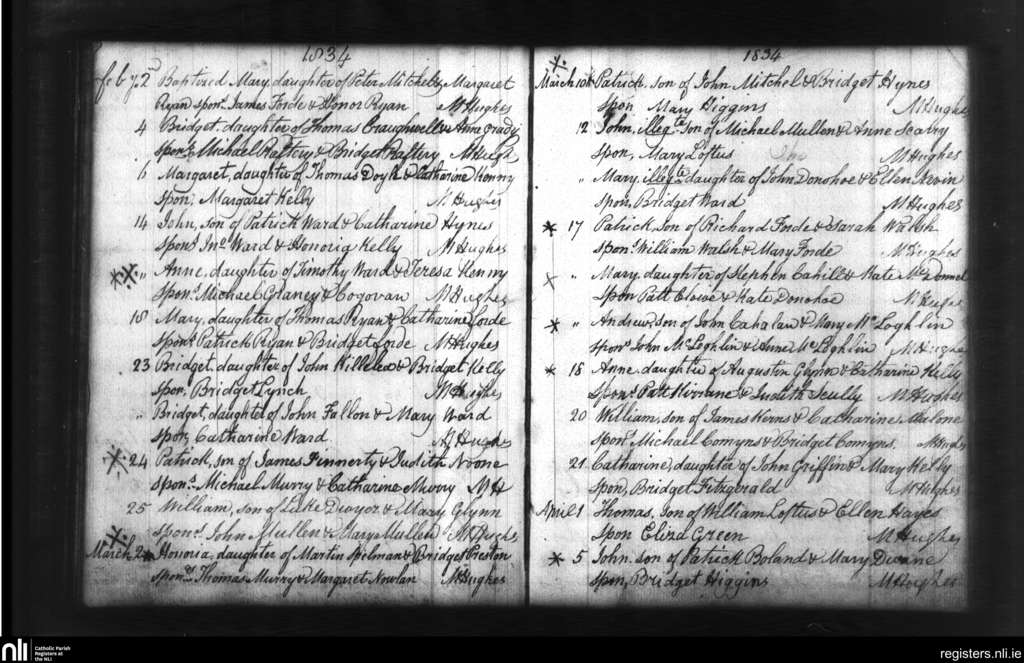 1834
Feby 2d Baptized Mary, daughter of Peter Mitchell & Margaret
Ryan sponr James Forde & Honor Ryan M Hughes
4 Bridget, daughter of Thomas Craughwell & Anne Grady
Spons Michael Raftery & Bridget Raftery M Hugh
6 Margaret, daughter of Thomas Doyle & Catharine Kenny
Spon, Margaret Kelly M Hughes
14 John, son of Patrick Ward & Catharine Hynes
Spons Jno Ward & Honoria Kelly M Hughes
" Anne, daughter of Timothy Ward & Teresa Kenny
Spons Michael Glaney & Cogovan M Hughes
18 Mary, daughter of Thomas Ryan & Catharine Forde
Spons Patrick Ryan & Bridget Forde M Hughes
23 Bridget, daughter of John & Bridget Kelly
Spon, Bridget Lynch M Hughes
" Bridget, daughter of John Fallon & Mary Ward
Spon, Catharine Ward M Hughes
24 Patrick, son of James Finnerty & Judith Noone
Spons Michael Murry & Catharine Murry M H
25 William, son of Luke & Mary Glynn
Spons John Mullen & Mary Mullen M Hughes
March 2 Honoria, daughter of Martin Spelman & Bridget Preston
Spons Thomas Murry & Margaret Nowlan M Hughes
1834
March 10th Patrick, son of John Mitchel & Bridget Hynes
Spon Mary Higgins M Hughes
12 John, illegte son of Michael Mullen & Anne Seavy
Spon, Mary Loftus M Hughes
" Mary, illegte daughter of John Donohoe & Ellen Kevin
Spon, Bridget Ward M Hughes
17 Patrick, son of Richard Forde & Sarah Walsh
Spons William Walsh & Mary Forde M Hughes
" Mary, daughter of Stephen Cahill & Kate McDonnel
Spon Patt & Kate Donohoe M Hughes
" Andrew, son of John Cahalan & Mary McLoghlin
Spons John McLoghlin & Anne McLoghlin M Hughes
18 Anne, daughter of Augustin Glynn & Catharine Kelly
Spons Patt & Judith Scully M Hughes
20 William, son of James Kerns & Catharine Malone
Spons Michael Comyns & Bridget Comyns. M Hughes
21 Catharine, daughter of John Griffin & Mary Kelly
Spon, Bridget Fitzgerald M Hughes
April 1 Thomas, son of William Loftus & Ellen Hayes
Spon Eliza Green M Hughes
5 John, son of Patrick Boland & Mary Dwane
Spon, Bridget Higgins M Hughes
nli Catholic Parish
Registers at
the NLI
registers.nli.ie